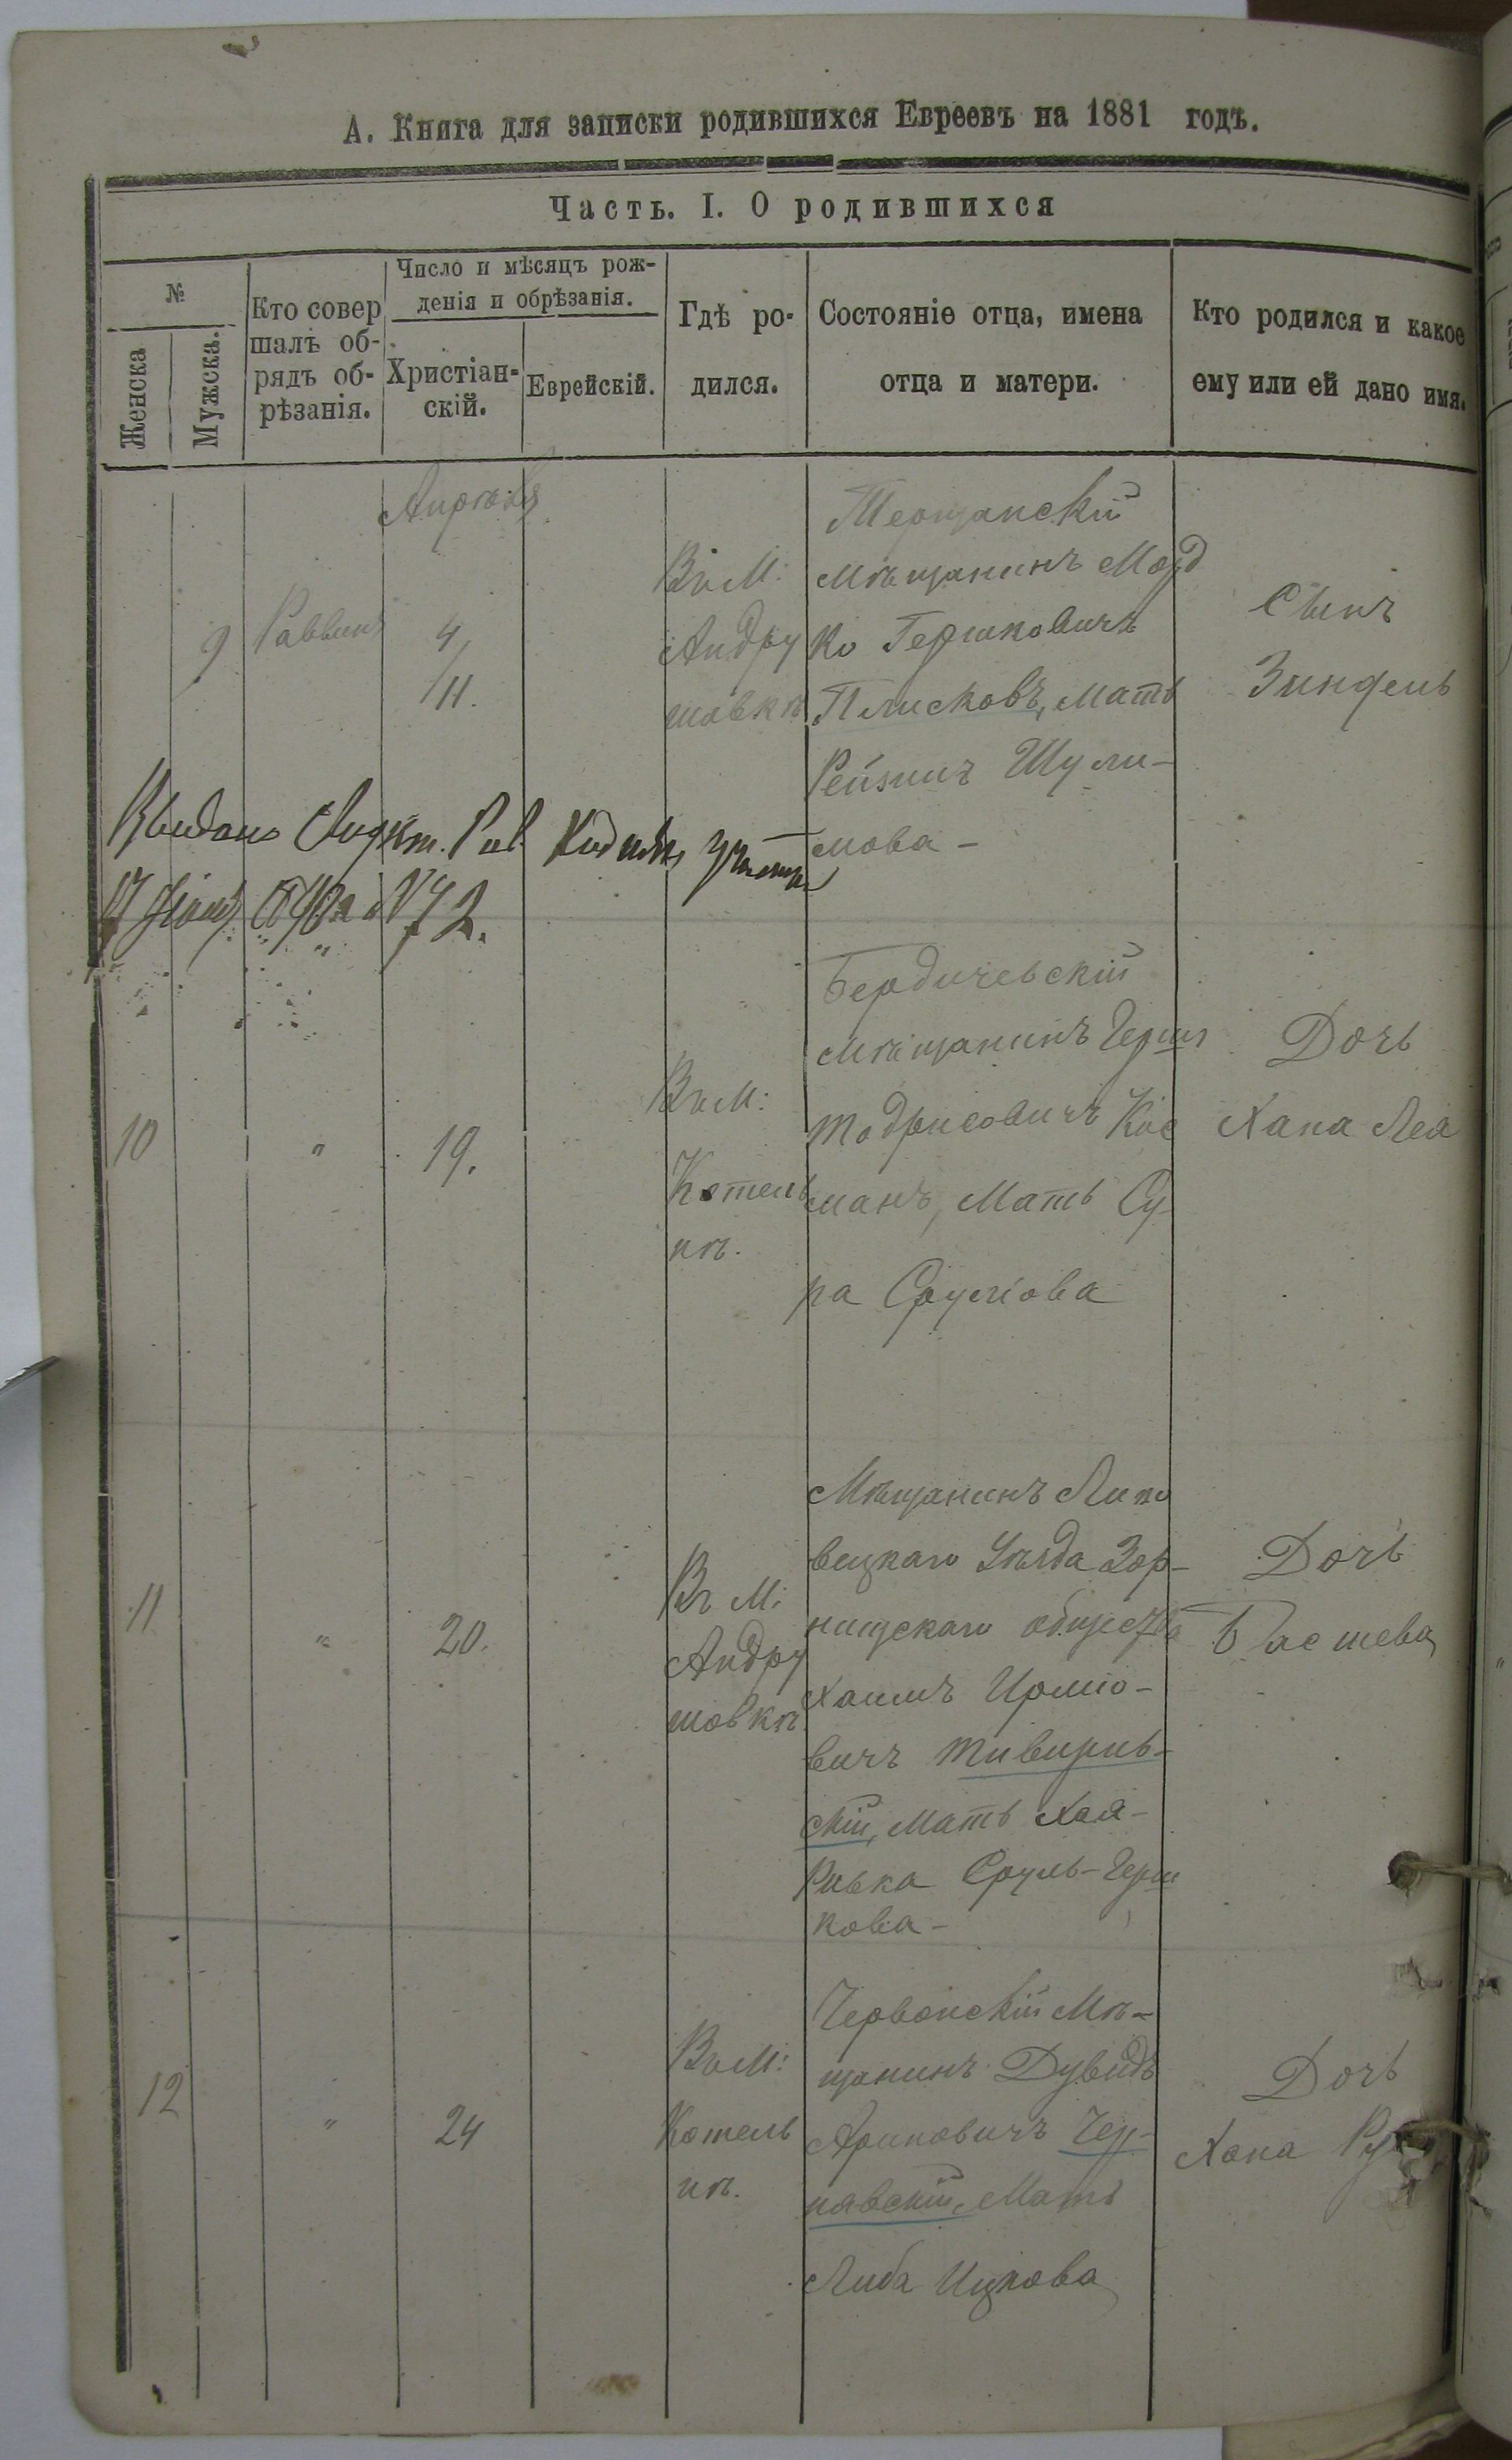 А. Книга для записки родившихся Евреевъ на 1881 годъ.
Часть. I. О родившихся
№
Женска
Мужска.
Кто совер
шалъ об-
рядъ об-
рѣзанія.
Число и мѣсяцъ рож-
денія и обрѣзанія.
Христіан-
скій.
Еврейскій.
Гдѣ ро-
дился.
Состояніе отца, имена
отца и матери.
Кто родился и какое
ему или ей дано имя.
Апрѣль
9
Раввинъ
4/11.
Въ М:
Андру
шовкѣ
мѣщанинъ Морд
ко Гершковичъ
Плисковъ, мать
Шули-
мова-
Сынъ
Зиндель
Выдано
№ 72.
10
"
19.
Въ М:
Котель
нѣ.
Бердичевскій
мѣщанинъ Герш
Тодрисовичъ Кос
манъ, мать Су
ра Срулiова
Дочь
Хана Лея
11
"
20.
Въ М:
Андру
шовкѣ
Мѣщанинъ Липо
вецкаго Уѣзда Зор-
ницскаго общества
Хаимъ
вичъ Тивирив-
скій, мать Хая-
Ривка Сруль-Герш
кова-
Дочь
Басшева
12
"
24
Въ М:
Котель
нѣ.
Червонскій Мѣ-
щанинъ Дувидъ
Ариновичъ Чер-
нявскій, Мать
Либа Ицкова
Дочь
Хана